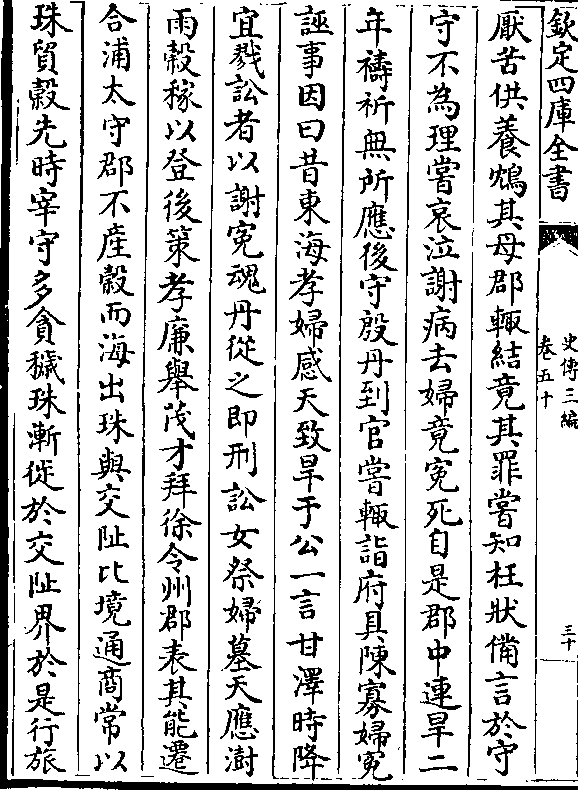 欽定四庫全書
史傳三編
卷五十
三十
厭苦供養鴆其母郡輙結竟其罪嘗知枉狀備言於守
守不為理嘗哀泣謝病去婦竟寃死自是郡中連旱二
年禱祈無所應後守殷丹到官嘗輙詣府具陳寡婦寃
誣事因曰昔東海孝婦感天致旱于公一言甘澤時降
宜戮訟者以謝寃魂丹從之即刑訟女祭婦墓天應澍
雨穀稼以登後策孝廉舉茂才拜徐令州郡表其能遷
合浦太守郡不產穀而海出珠與交阯比境通商常以
珠貿穀先時宰守多貪穢珠漸徙於交阯界於是行旅